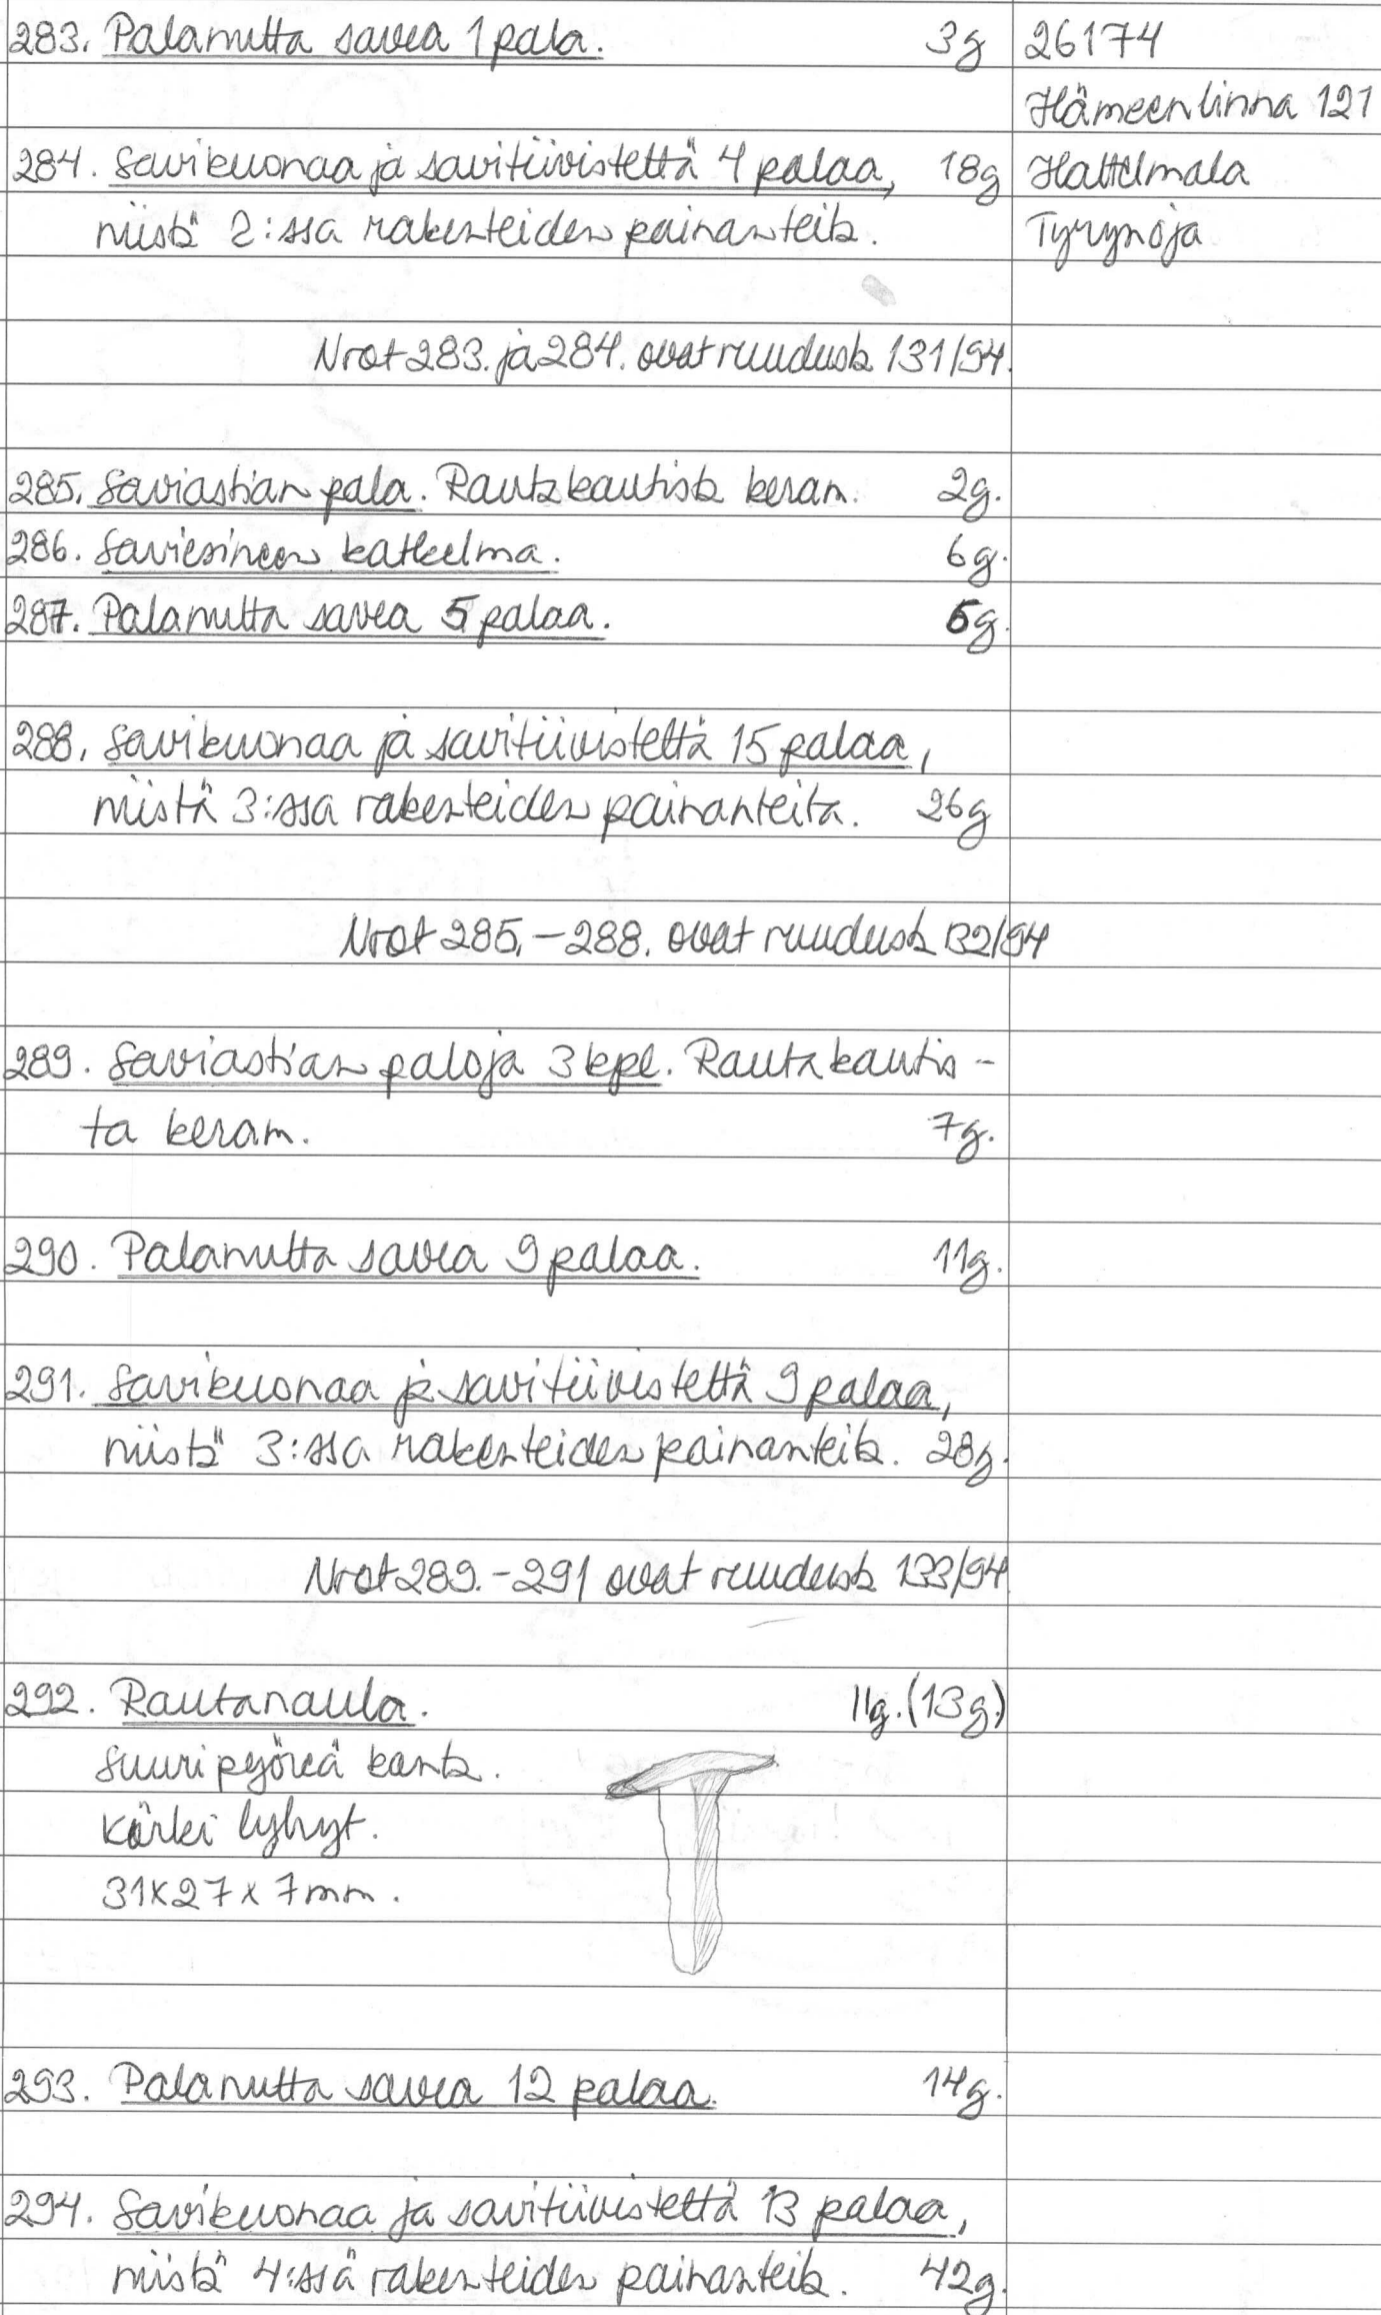 283. Palanutta savea 1 pala. 3g 26174
Hämeenlinna 121
284. Savikuonaa ja savitiivistettä 4 palaa, 18g Hattelmala
niistä 2:ssa rakenteiden painanteita. Tyrynoja
Nrot 283. ja 284. ovat ruudusta 131/94.
285. Saviastian pala. Rautakautista keram. 2g.
286. Saviesineen katkelma. 6g.
287. Palanutta savea 5 palaa. 5g.
288. Savikuonaa ja savitiivistettä 15 palaa,
niistä 3:ssa rakenteiden painanteita. 26g
Nrot 285.-288. ovat ruudusta 132/94
289. Saviastian paloja 3 kpl. Rautakautis-
ta keram. 7g.
290. Palanutta savea 9 palaa. 11g.
291. Savikuonaa ja savitiivistettä 9 palaa,
niistä 3:ssa rakenteiden painanteita. 28g.
Nrot 289.-291 ovat ruudusta 133/94
292. Rautanaula. 11g. (13g.)
Suuri pyöreä kanta.
Kärki lyhyt.
31x27x7mm.
293. Palanutta savea 12 palaa. 14g.
294. Savikuonaa ja savitiivistettä 13 palaa,
niistä 4:ssä rakenteiden painanteita. 42g.